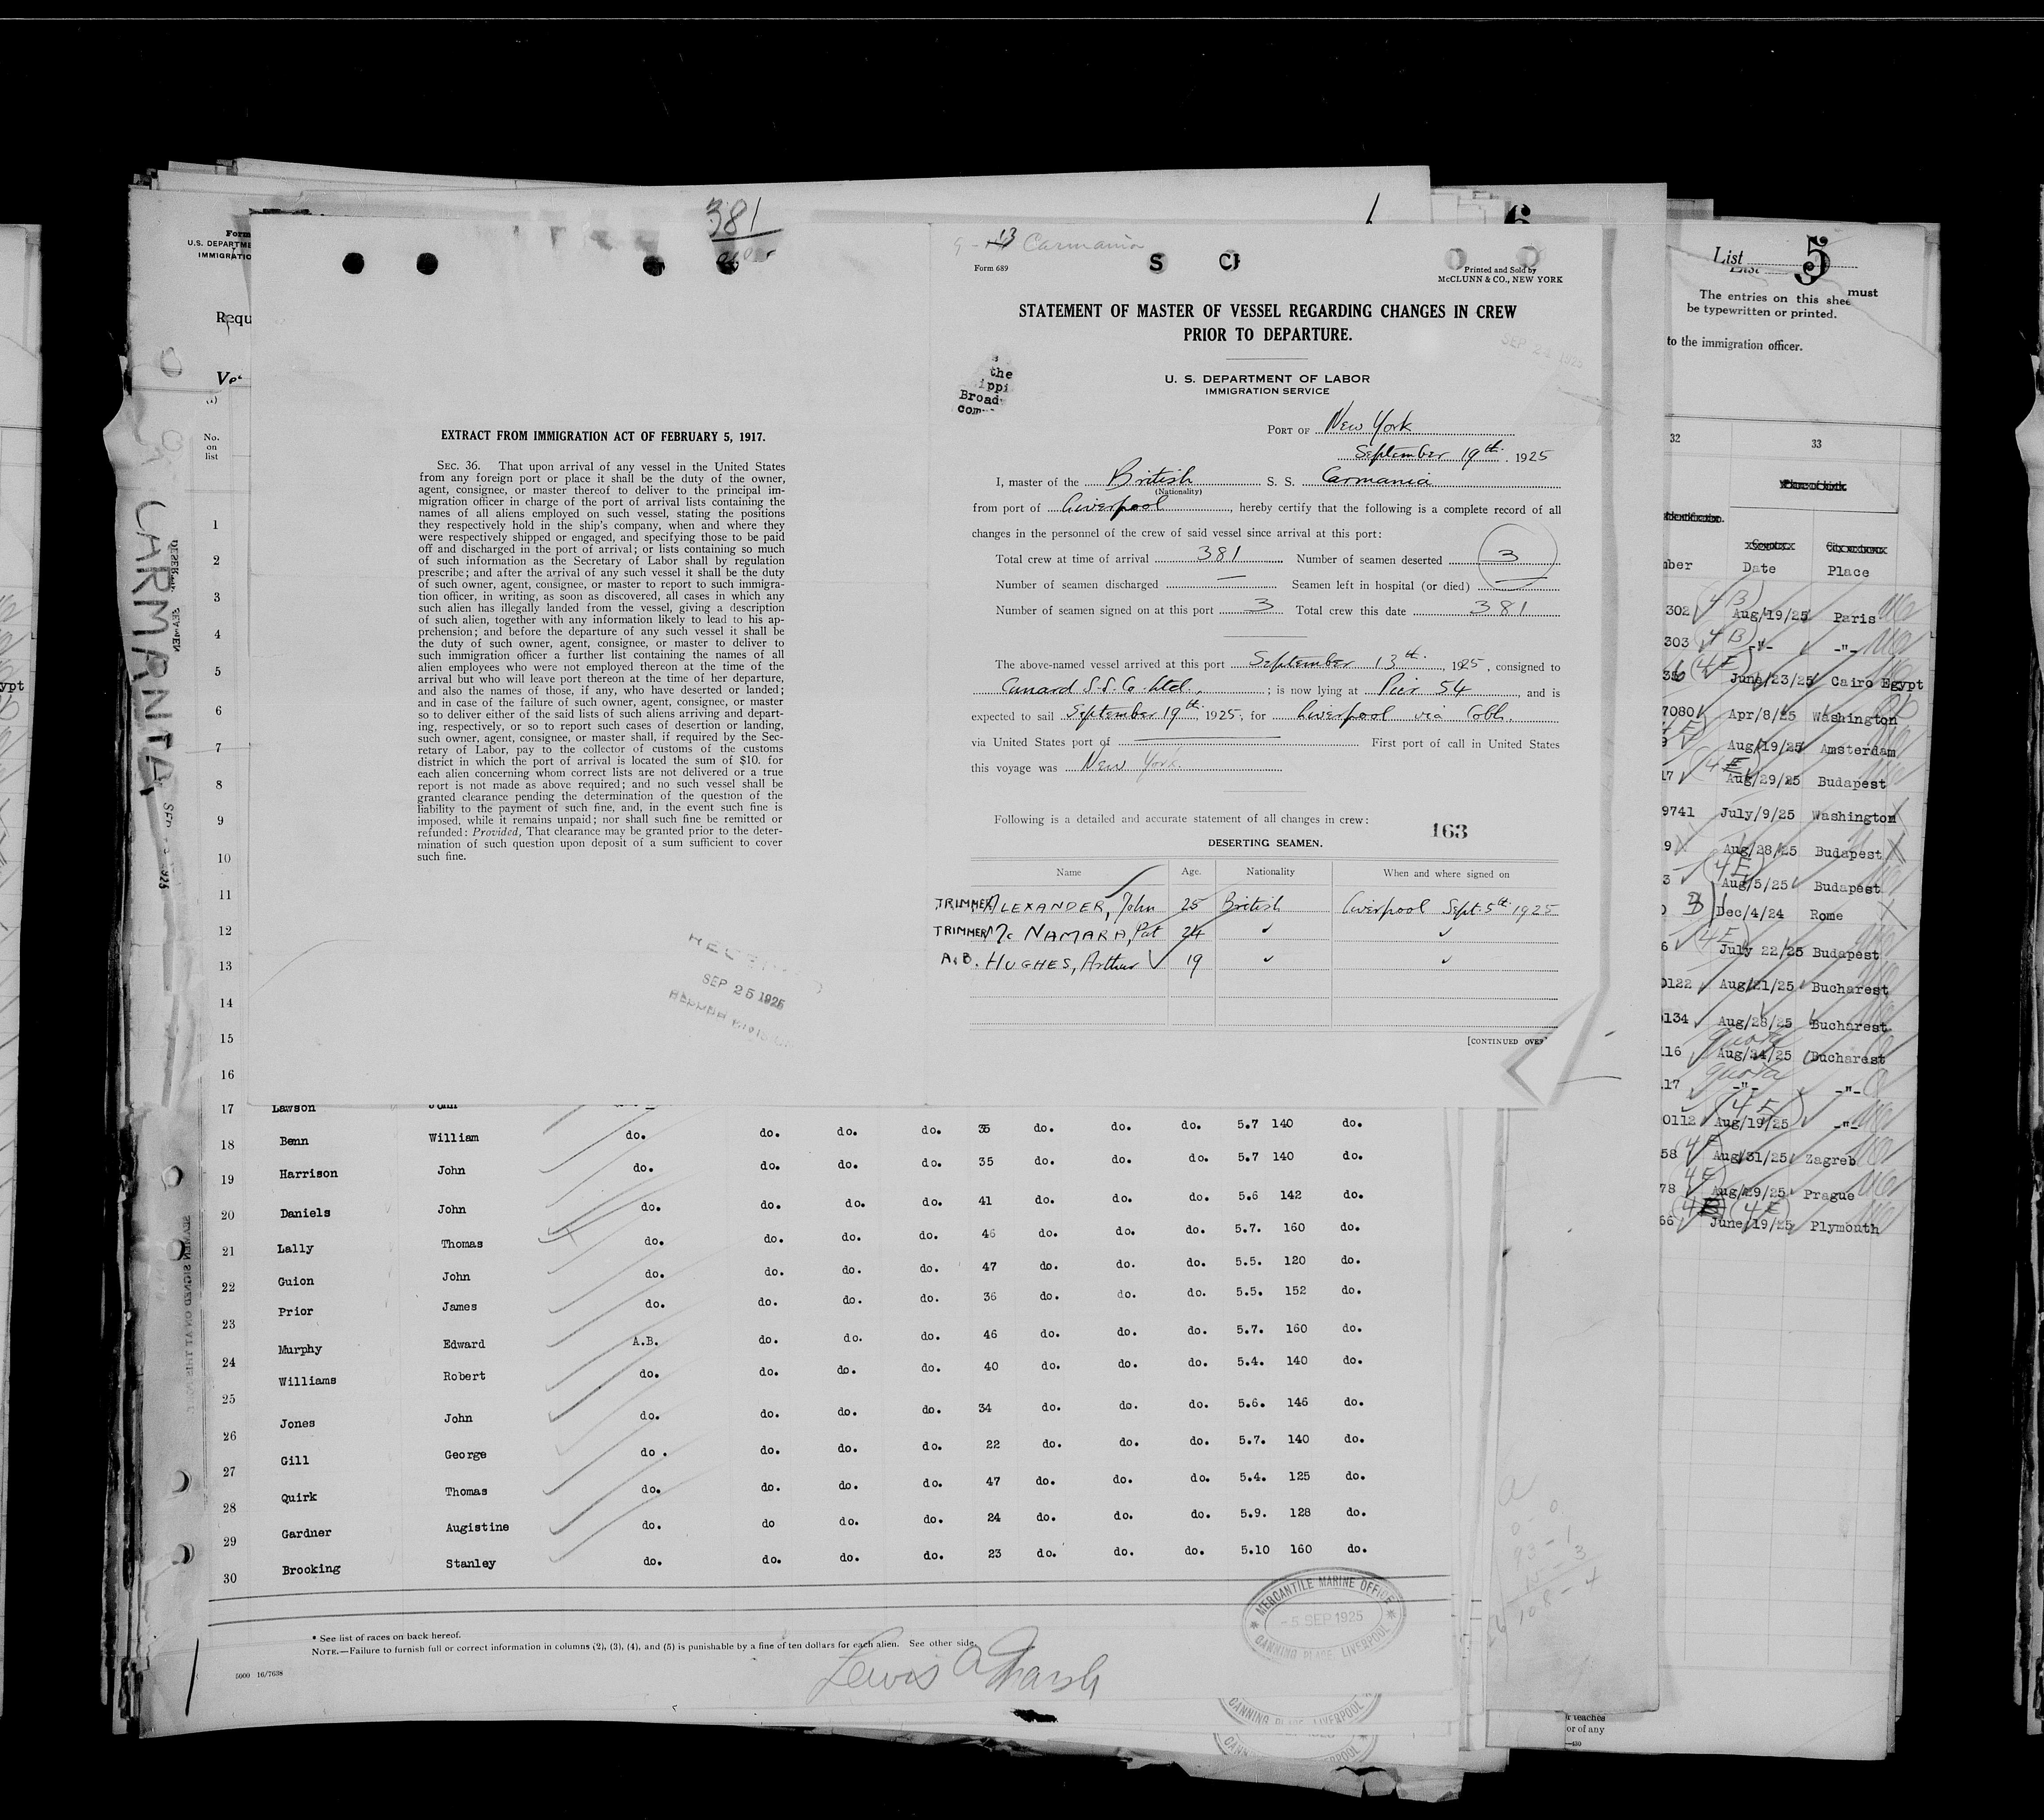 381
9-13 Carmania
Form 689
Printed and Sold by
McCLUNN & CO., NEW YORK
STATEMENT OF MASTER OF VESSEL REGARDING CHANGES IN CREW
PRIOR TO DEPARTURE.
SEP 25 1925
U. S. DEPARTMENT OF LABOR
IMMIGRATION SERVICE
PORT OF New York
September 19th. 1925
I, master of the British S. S. Carmania
(Nationality)
from port of Liverpool, hereby certify that the following is a complete record of all
changes in the personnel of the crew of said vessel since arrival at this port:
Total crew at time of arrival 381 Number of seamen deserted 3
Number of seamen discharged — Seamen left in hospital (or died) —
Number of seamen signed on at this port 3 Total crew this date 381
The above-named vessel arrived at this port September 13th, 1925, consigned to
Cunard S.S. Co. Ltd., ; is now lying at Pier 54, and is
expected to sail September 19th, 1925, for Liverpool via Cobh.
via United States port of — First port of call in United States
this voyage was New York.
Following is a detailed and accurate statement of all changes in crew:
163
DESERTING SEAMEN.
Name Age. Nationality When and where signed on
TRIMMER ALEXANDER, John 25 British Liverpool Sept. 5th 1925
TRIMMER Mc NAMARA, Pat 24 ✓ ✓
A.B. HUGHES, Arthur ✓ 19 ✓ ✓
[CONTINUED OVER]
EXTRACT FROM IMMIGRATION ACT OF FEBRUARY 5, 1917.
SEC. 36. That upon arrival of any vessel in the United States
from any foreign port or place it shall be the duty of the owner,
agent, consignee, or master thereof to deliver to the principal im-
migration officer in charge of the port of arrival lists containing the
names of all aliens employed on such vessel, stating the positions
they respectively hold in the ship's company, when and where they
were respectively shipped or engaged, and specifying those to be paid
off and discharged in the port of arrival; or lists containing so much
of such information as the Secretary of Labor shall by regulation
prescribe; and after the arrival of any such vessel it shall be the duty
of such owner, agent, consignee, or master to report to such immigra-
tion officer, in writing, as soon as discovered, all cases in which any
such alien has illegally landed from the vessel, giving a description
of such alien, together with any information likely to lead to his ap-
prehension; and before the departure of any such vessel it shall be
the duty of such owner, agent, consignee, or master to deliver to
such immigration officer a further list containing the names of all
alien employees who were not employed thereon at the time of the
arrival but who will leave port thereon at the time of her departure,
and also the names of those, if any, who have deserted or landed;
and in case of the failure of such owner, agent, consignee, or master
so to deliver either of the said lists of such aliens arriving and depart-
ing, respectively, or so to report such cases of desertion or landing,
such owner, agent, consignee, or master shall, if required by the Sec-
retary of Labor, pay to the collector of customs of the customs
district in which the port of arrival is located the sum of $10. for
each alien concerning whom correct lists are not delivered or a true
report is not made as above required; and no such vessel shall be
granted clearance pending the determination of the question of the
liability to the payment of such fine, and, in the event such fine is
imposed, while it remains unpaid; nor shall such fine be remitted or
refunded: Provided, That clearance may be granted prior to the deter-
mination of such question upon deposit of a sum sufficient to cover
such fine.
SEP 25 1925
CARMANIA
No.
on
list
1
2
3
4
5
6
7
8
9
10
11
12
13
14
15
16
17 Lawson John
18 Benn William do. do. do. do. 35 do. do. do. 5.7 140 do.
19 Harrison John do. do. do. do. 35 do. do. do. 5.7 140 do.
20 Daniels John do. do. do. do. 41 do. do. do. 5.6 142 do.
21 Lally Thomas do. do. do. do. 46 do. do. do. 5.7. 160 do.
22 Guion John do. do. do. do. 47 do. do. do. 5.5. 120 do.
23 Prior James do. do. do. do. 36 do. do. do. 5.5. 152 do.
24 Murphy Edward A.B. do. do. do. 46 do. do. do. 5.7. 160 do.
25 Williams Robert do. do. do. do. 40 do. do. do. 5.4. 140 do.
26 Jones John do. do. do. do. 34 do. do. do. 5.6. 146 do.
27 Gill George do . do. do. do. 22 do. do. do. 5.7. 140 do.
28 Quirk Thomas do. do. do. do. 47 do. do. do. 5.4. 125 do.
29 Gardner Augistine do. do do. do. 24 do. do. do. 5.9. 128 do.
30 Brooking Stanley do. do. do. do. 23 do. do. do. 5.10 160 do.
* See list of races on back hereof.
NOTE.—Failure to furnish full or correct information in columns (2), (3), (4), and (5) is punishable by a fine of ten dollars for each alien. See other side.
5000 16/7638
MERCANTILE MARINE OFFICE
-5 SEP 1925
CANNING PLACE, LIVERPOOL
Lewis A Marsh
List 5
The entries on this sheet must
be typewritten or printed.
to the immigration officer.
32 33
Date Place
302 Aug/19/25 Paris
303 -"- -"-
June/23/25 Cairo Egypt
7080 Apr/8/25 Washington
Aug/19/25 Amsterdam
17 Aug/29/25 Budapest
9741 July/9/25 Washington
9 Aug/28/25 Budapest
3 Aug/5/25 Budapest
Dec/4/24 Rome
6 July 22/25 Budapest
0122 Aug/21/25 Bucharest
0134 Aug/28/25 Bucharest
116 quota Aug/24/25 Bucharest
17 quota -"- -"-
0112 Aug/19/25 -"-
58 Aug/31/25 Zagreb
78 Aug/29/25 Prague
66 June/19/25 Plymouth